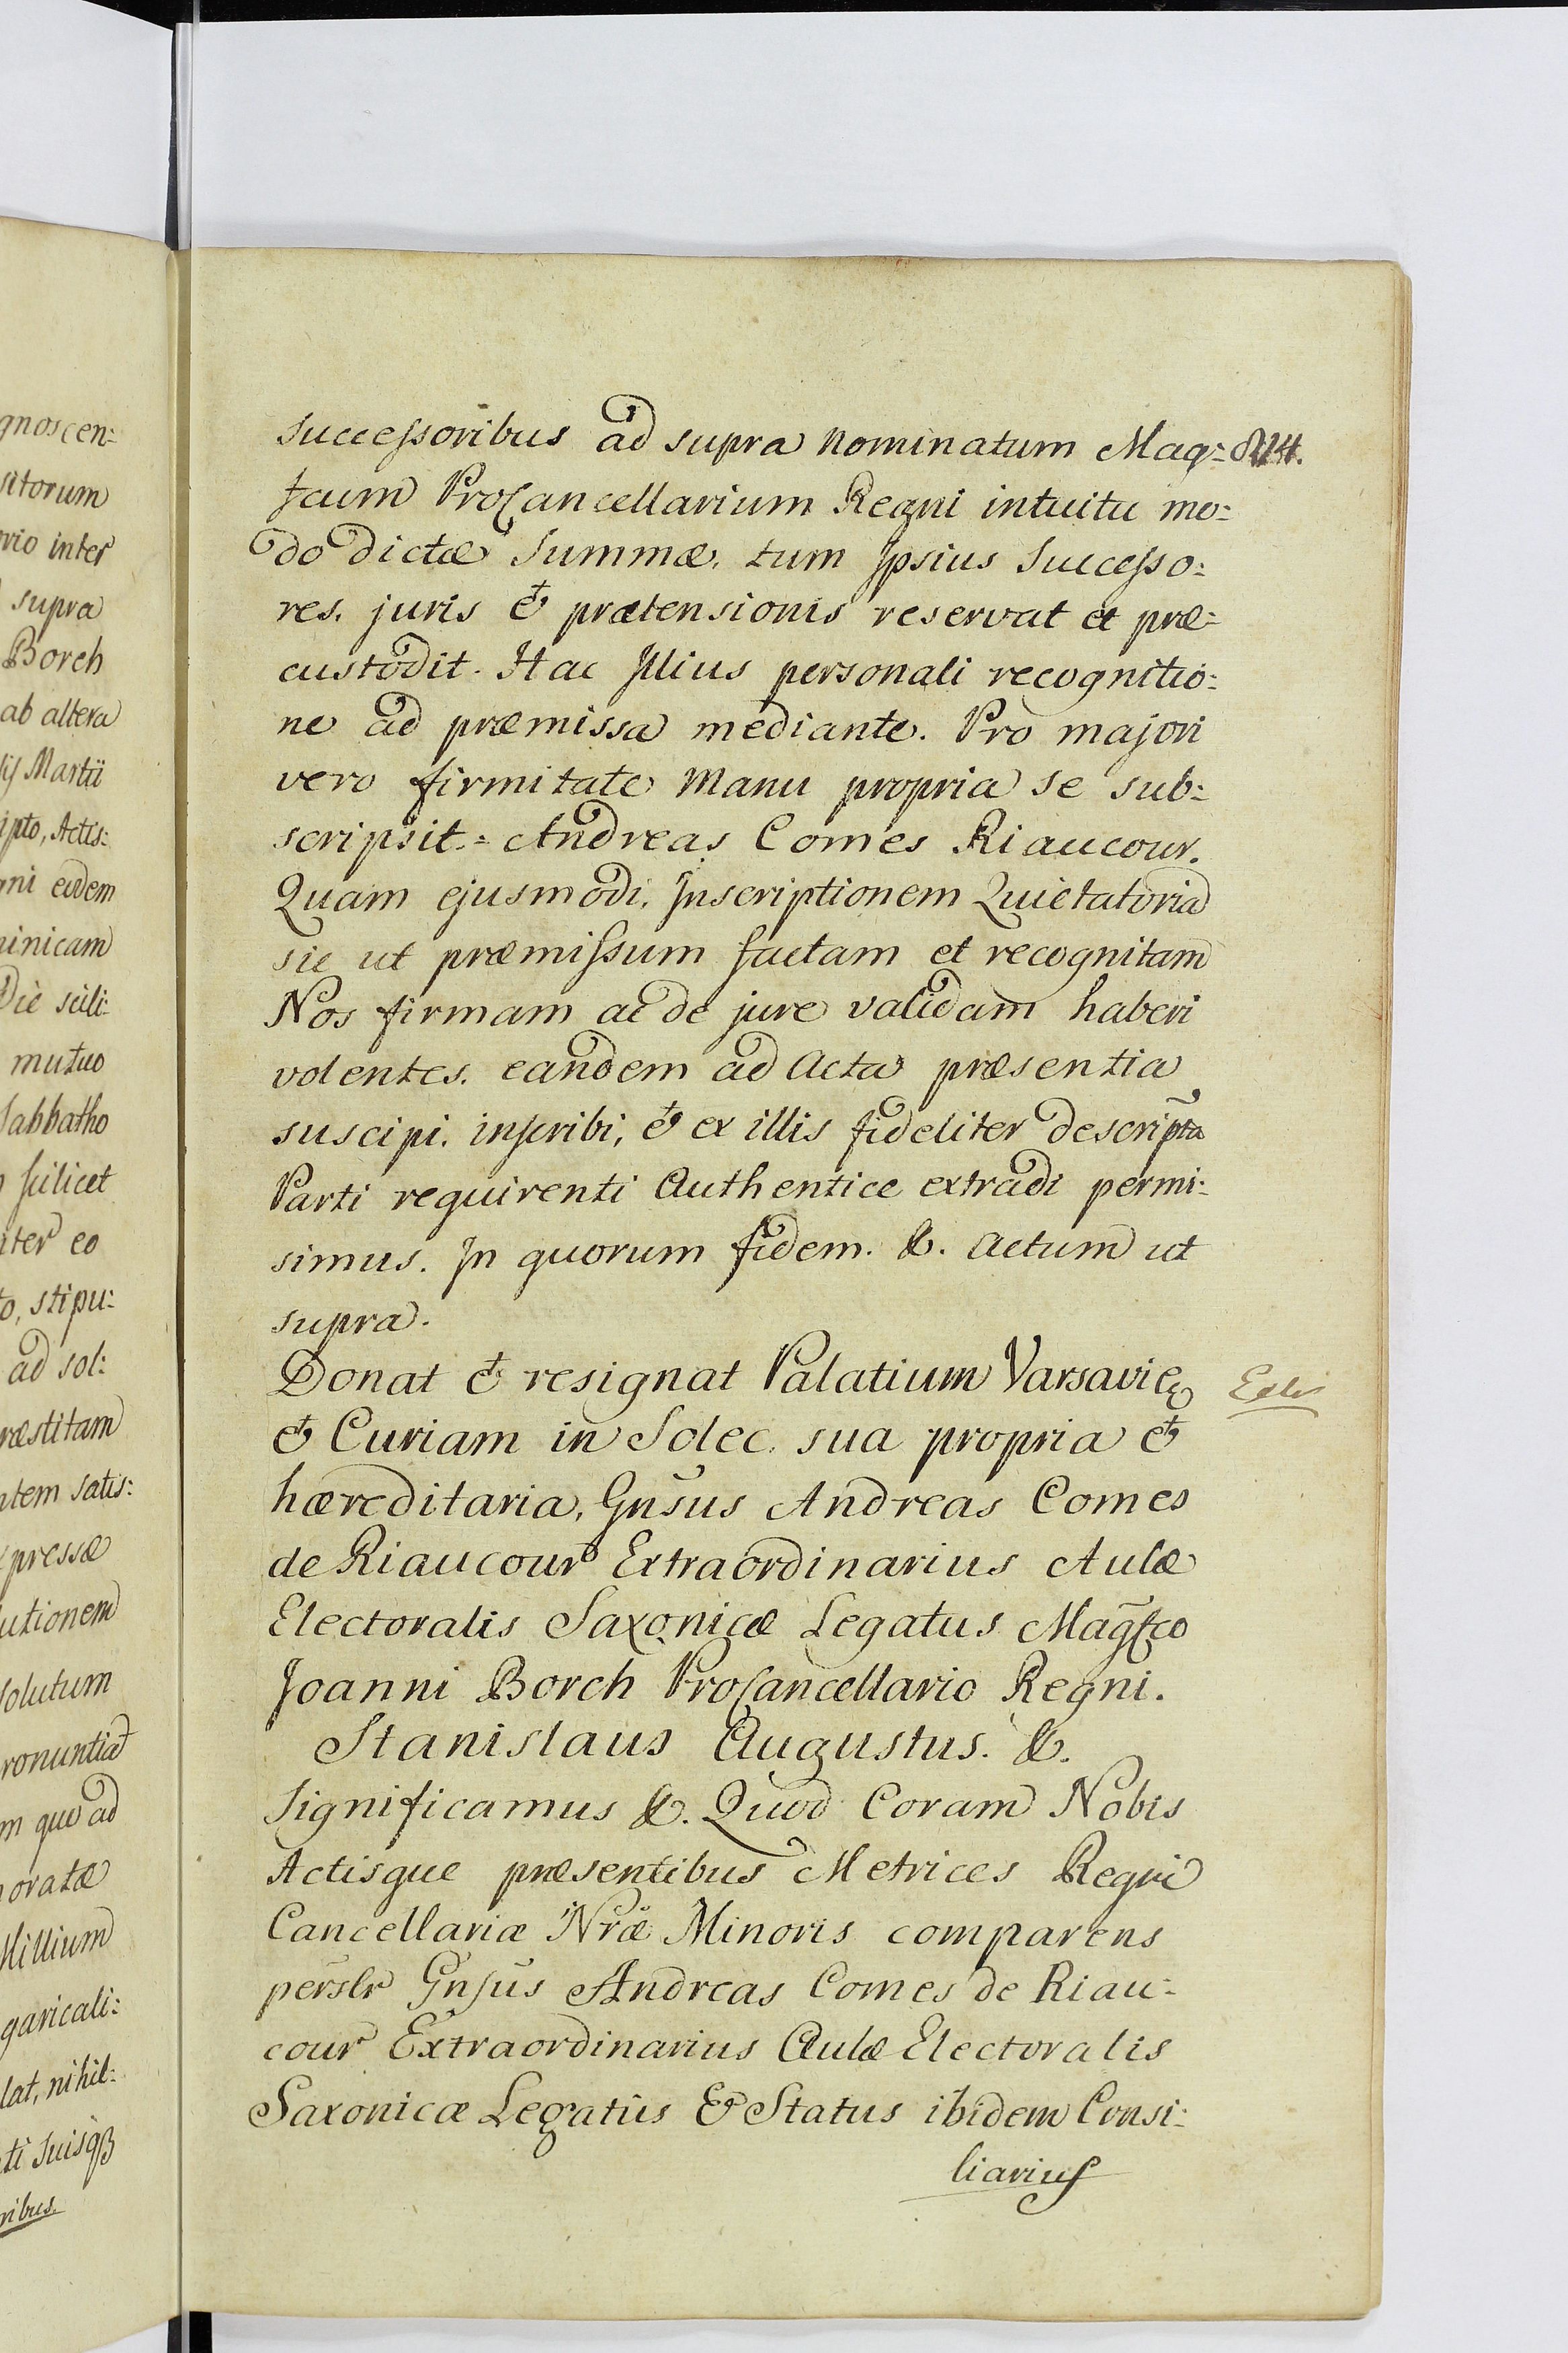 gnoscen:
sitorum
rio inter
supra
Borch
ab altera
Martii
ipto, Actis:
gni eidem
minicam
Die scili:
mutuo
Sabbatho
scilicet
iter eo
to, stipu:
ad sol:
ræstitam
ntem satis:
xpressæ
lutionem
solutum
ronuntiat
m quo ad
oratæ
Millium
garicali:
lat, nihil:
ti suisqß
ribus.
successoribus ad supra nominatum Mag:
fcum ProCancellarium Regni intuitu mo:
do dictæ Summæ, tum Ipsius Successo:
res, juris & prætensionis reservat et præ:
custodit. Hac Illius personali recognitio:
ne ad præmissa mediante. Pro majori
vero firmitate manu propria se sub:
scripsit.= Andreas Comes Riaucour.
Quam ejusmodi, Inscriptionem Quietatoria
sic ut præmissum factam et recognitam
Nos firmam ac de jure validam haberi
volentes, eandem ad Acta præsentia
suscipi, inscribi, & ex illis fideliter descripta
Parti requirenti Authentice extradi permi:
simus. In quorum fidem. &. Actum ut
supra.
Donat & resignat Palatium Varsaviæ
& Curiam in Solec, sua propria &
hæreditaria, Gnsus Andreas Comes
de Riaucour Extraordinarius Aulæ
Electoralis Saxonicæ Legatus Magfco
Joanni Borch ProCancellario Regni.
Stanislaus Augustus. &.
Significamus &. Quod Coram Nobis
Actisque præsentibus Metrices Regni
Cancellariæ Nræ Minoris comparens
perslr Gnsus Andreas Comes de Riau:
cour Extraordinarius Aulæ Electoralis
Saxonicæ Legatus & Status ibidem Consi:
liarius